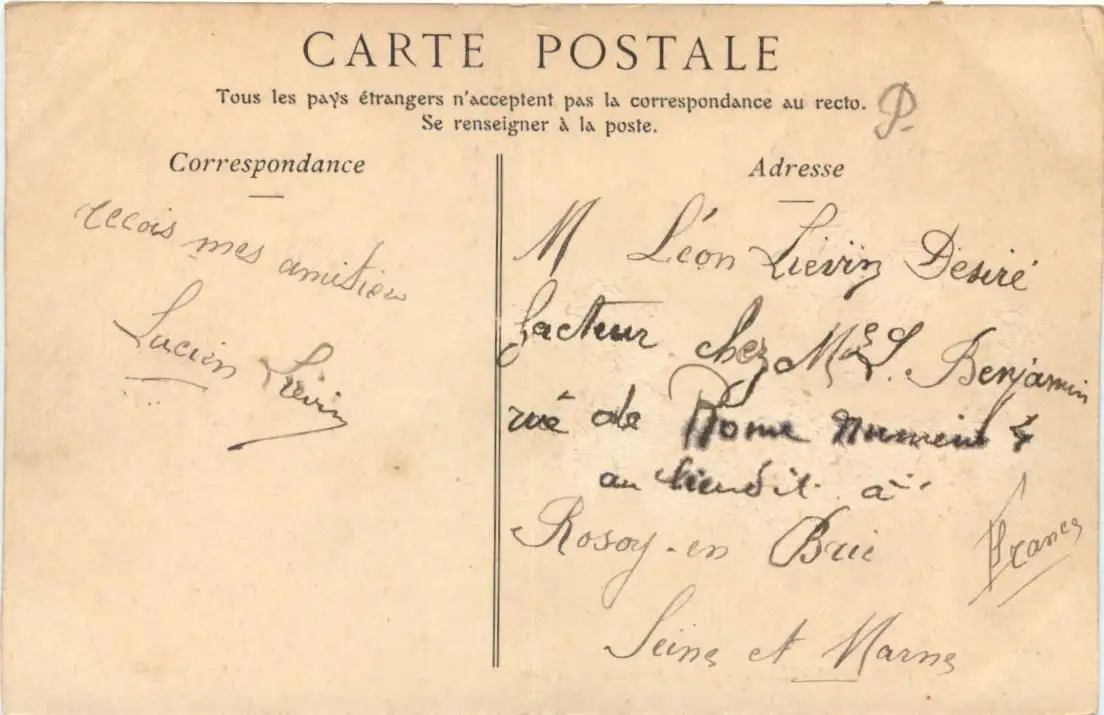 CARTE POSTALE
Tous les pays étrangers n'acceptent pas la correspondance au recto.
Se renseigner à la poste.
P.
Correspondance
recois mes amitiés
Lucien Liévin
Adresse
M Léon Liévin Désiré
facteur chez Benjamin
rue de Rome
au lieudit à
Rosoy-en Brie
France
Seine et Marne